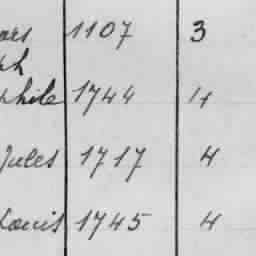 ars 1107 3
ph
phile 1744 4
Jules 1717 4
Louis 1745 4